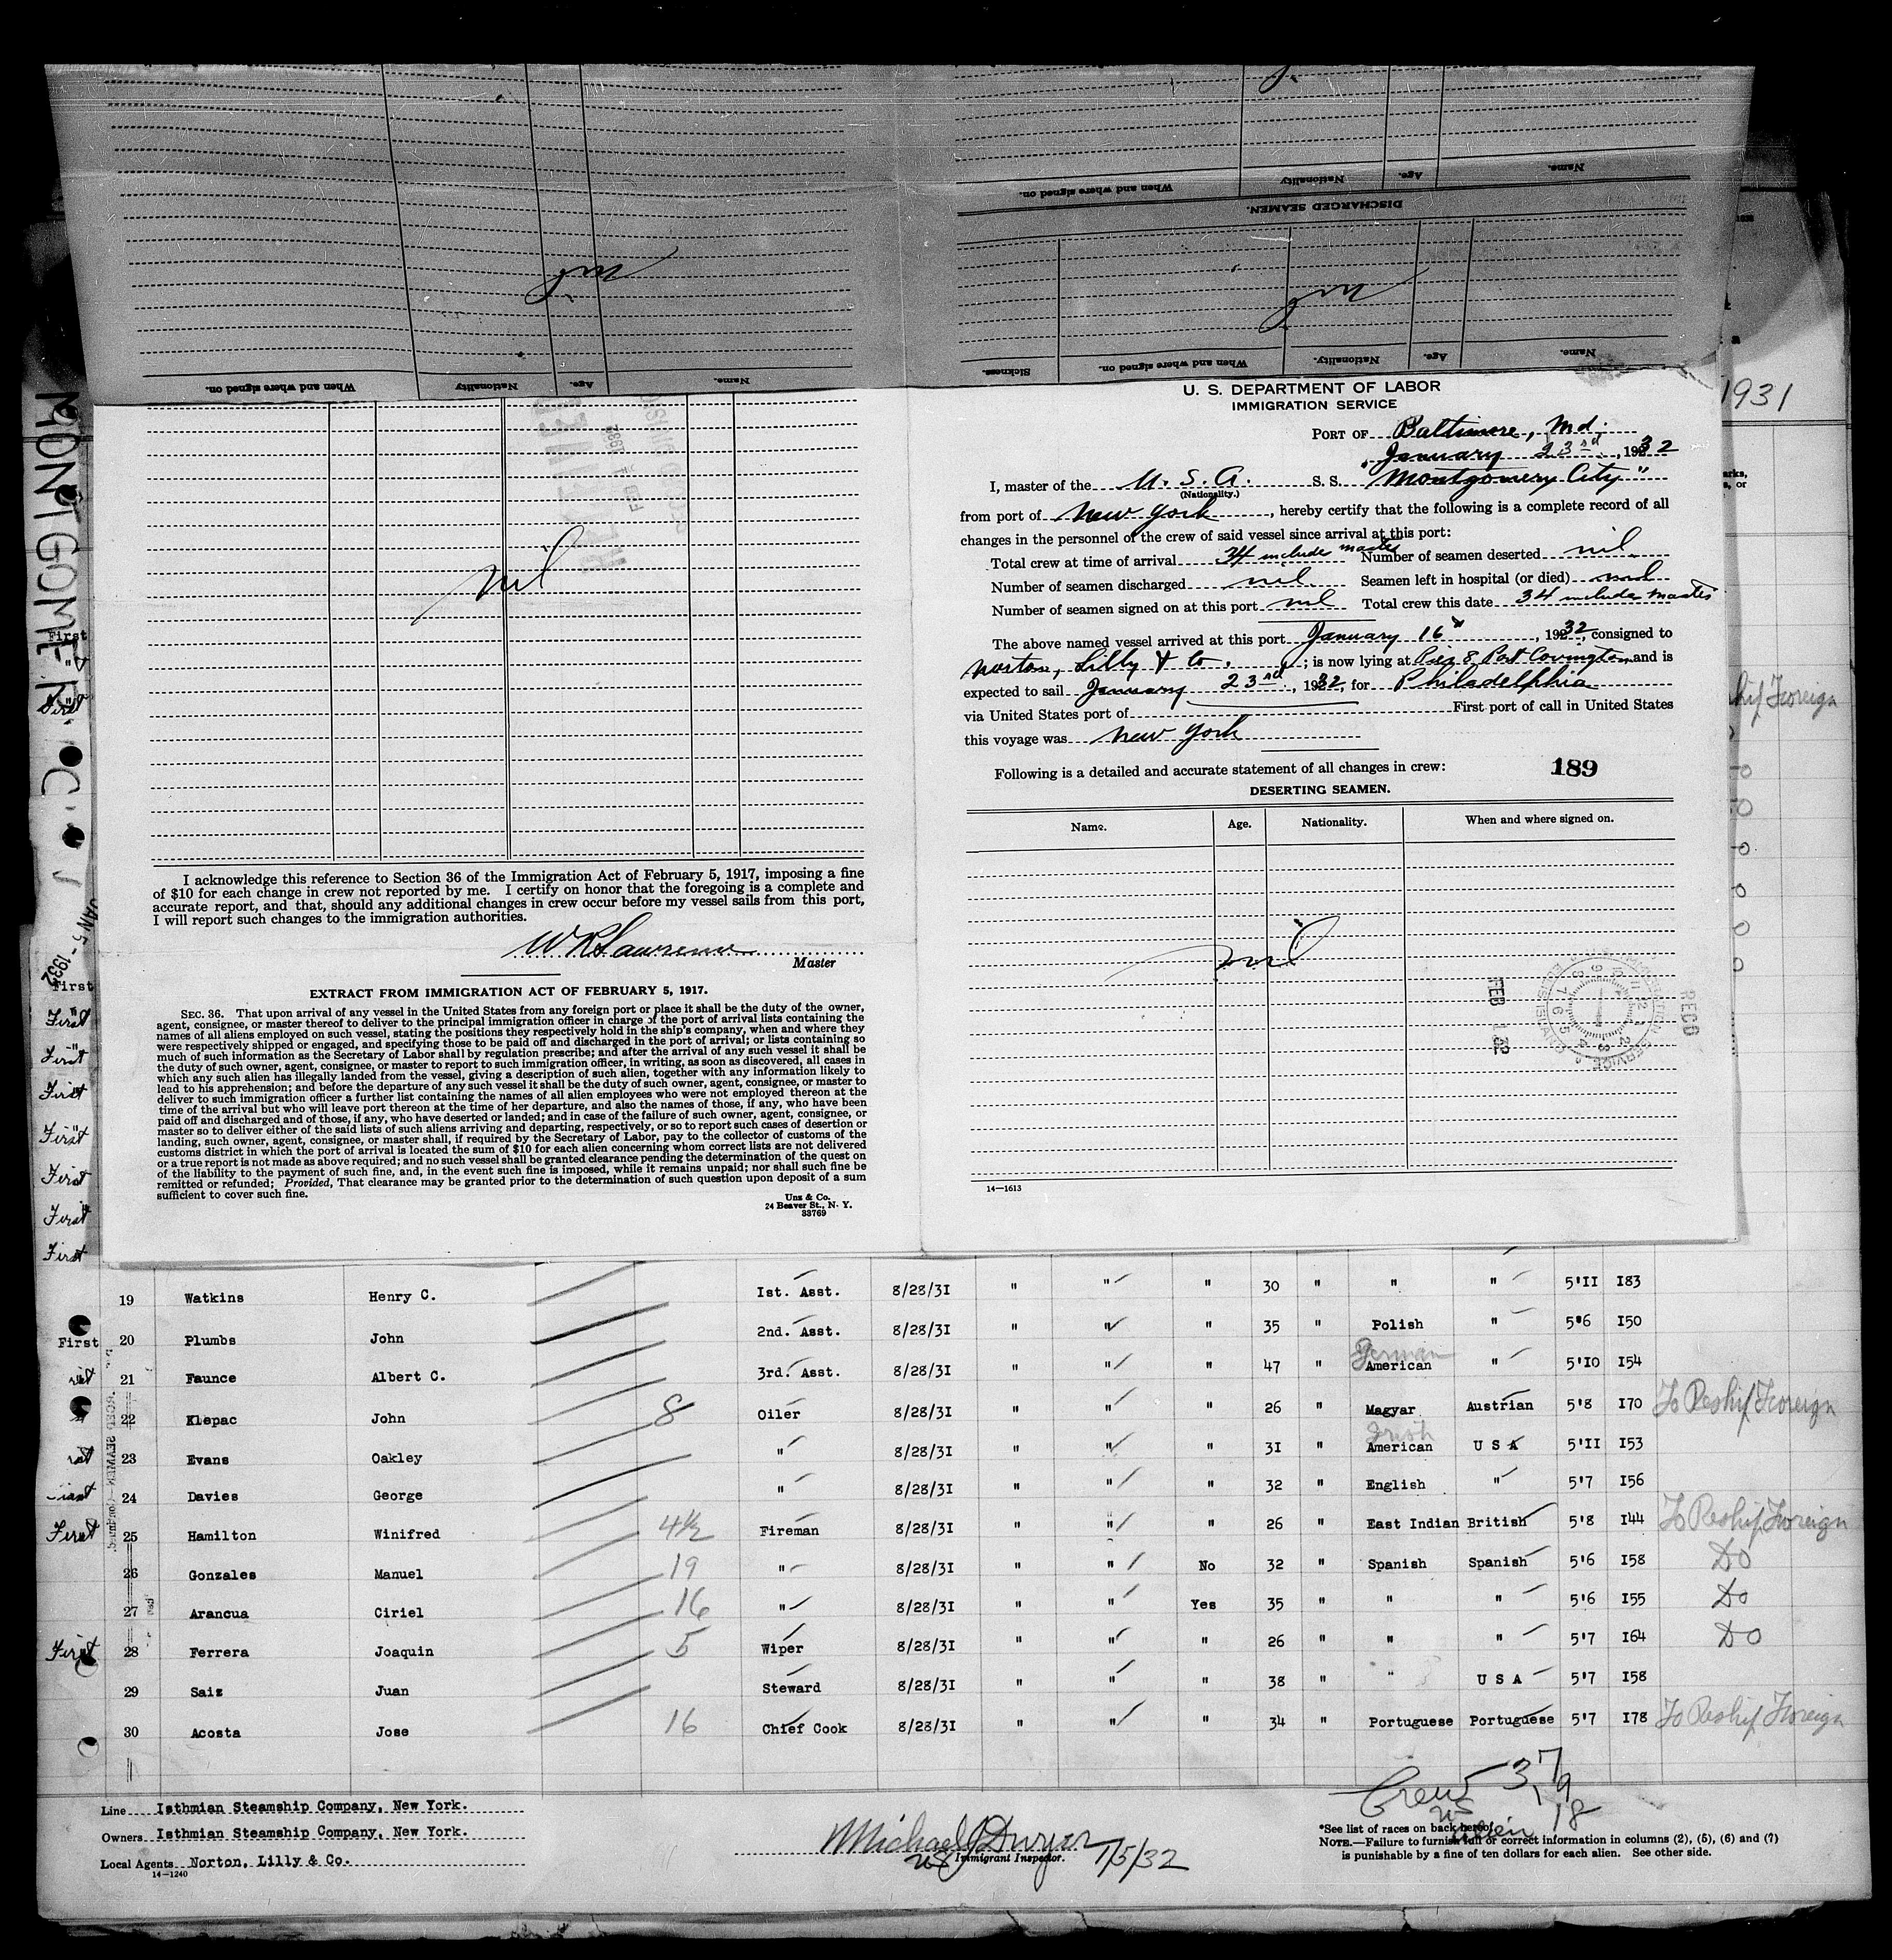 When and where signed on. Nationality Age. Name.
When and where signed on. Nationality Age. Name.
DISCHARGED SEAMEN.
Sickness. When and where signed on. Nationality. Age. Name.
nil
nil
MONTGOMERY C
1931
U. S. DEPARTMENT OF LABOR
IMMIGRATION SERVICE
PORT OF Baltimore, Md.
January 23rd, 1932
I, master of the U. S. A. S. S. "Montgomery City"
(Nationality.)
from port of New York, hereby certify that the following is a complete record of all
changes in the personnel of the crew of said vessel since arrival at this port:
Total crew at time of arrival 34 include master Number of seamen deserted nil
Number of seamen discharged nil Seamen left in hospital (or died) nil
Number of seamen signed on at this port nil Total crew this date 34 include master
The above named vessel arrived at this port January 16, 1932, consigned to
Norton, Lilly & Co.; is now lying at Pier 8 Port Covington and is
expected to sail January 23rd, 1932, for Philadelphia
via United States port of First port of call in United States
this voyage was New York
Following is a detailed and accurate statement of all changes in crew: 189
DESERTING SEAMEN.
Name. Age. Nationality. When and where signed on.
nil
RECD
FEB 1 32
14—1613
FEB 1 1932
nil
I acknowledge this reference to Section 36 of the Immigration Act of February 5, 1917, imposing a fine
of $10 for each change in crew not reported by me. I certify on honor that the foregoing is a complete and
accurate report, and that, should any additional changes in crew occur before my vessel sails from this port,
I will report such changes to the immigration authorities.
W R Lawrence
Master
EXTRACT FROM IMMIGRATION ACT OF FEBRUARY 5, 1917.
SEC. 36. That upon arrival of any vessel in the United States from any foreign port or place it shall be the duty of the owner,
agent, consignee, or master thereof to deliver to the principal immigration officer in charge of the port of arrival lists containing the
names of all aliens employed on such vessel, stating the positions they respectively hold in the ship's company, when and where they
were respectively shipped or engaged, and specifying those to be paid off and discharged in the port of arrival; or lists containing so
much of such information as the Secretary of Labor shall by regulation prescribe; and after the arrival of any such vessel it shall be
the duty of such owner, agent, consignee, or master to report to such immigration officer, in writing, as soon as discovered, all cases in
which any such alien has illegally landed from the vessel, giving a description of such alien, together with any information likely to
lead to his apprehension; and before the departure of any such vessel it shall be the duty of such owner, agent, consignee, or master to
deliver to such immigration officer a further list containing the names of all alien employees who were not employed thereon at the
time of the arrival but who will leave port thereon at the time of her departure, and also the names of those, if any, who have been
paid off and discharged and of those, if any, who have deserted or landed; and in case of the failure of such owner, agent, consignee, or
master so to deliver either of the said lists of such aliens arriving and departing, respectively, or so to report such cases of desertion or
landing, such owner, agent, consignee, or master shall, if required by the Secretary of Labor, pay to the collector of customs of the
customs district in which the port of arrival is located the sum of $10 for each alien concerning whom correct lists are not delivered
or a true report is not made as above required; and no such vessel shall be granted clearance pending the determination of the quest on
of the liability to the payment of such fine, and, in the event such fine is imposed, while it remains unpaid; nor shall such fine be
remitted or refunded; Provided, That clearance may be granted prior to the determination of such question upon deposit of a sum
sufficient to cover such fine.
Unz & Co.
24 Beaver St., N. Y.
33769
JAN 5-1932
First
First
First
First
First
First
First
First
First
First
19 Watkins Henry C. 1st. Asst. 8/28/31 " " " 30 " " " 5'11 183
First 20 Plumbs John 2nd. Asst. 8/28/31 " " " 35 " Polish " 5'6 150
German
21 Faunce Albert C. 3rd. Asst. 8/28/31 " " " 47 " American " 5'10 154
22 Klepac John 8 Oiler 8/28/31 " " " 26 " Magyar Austrian 5'8 170 To Reship Foreign
Irish
23 Evans Oakley " 8/28/31 " " " 31 " American U S A 5'11 153
24 Davies George " 8/28/31 " " " 32 " English " 5'7 156
First 25 Hamilton Winifred 4½ Fireman 8/28/31 " " " 26 " East Indian British 5'8 144 To Reship Foreign
26 Gonzales Manuel 19 " 8/28/31 " " No 32 " Spanish Spanish 5'6 158 Do
27 Arancua Ciriel 16 " 8/28/31 " " Yes 35 " " " 5'6 155 Do
First 28 Ferrera Joaquin 5 Wiper 8/28/31 " " " 26 " " " 5'7 164 Do
29 Saiz Juan Steward 8/28/31 " " " 38 " " U S A 5'7 158
30 Acosta Jose 16 Chief Cook 8/28/31 " " " 34 " Portuguese Portuguese 5'7 178 To Reship Foreign
Crew 37
US 19
Alien 18
Line Isthmian Steamship Company, New York.
Owners Isthmian Steamship Company, New York.
Local Agents Norton, Lilly & Co.
14—1240
Michael J Dwyer
Immigrant Inspector. 1/5/32
*See list of races on back hereof.
NOTE.—Failure to furnish full or correct information in columns (2), (5), (6) and (7)
is punishable by a fine of ten dollars for each alien. See other side.